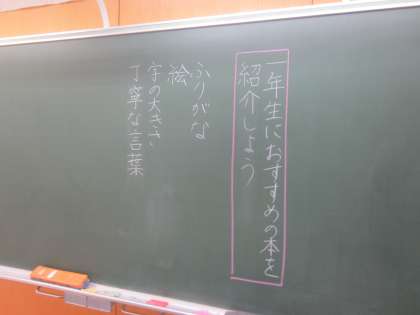 一年生におすすめの本を
紹介しよう
ふりがな
絵
字の大きさ
丁寧な言葉